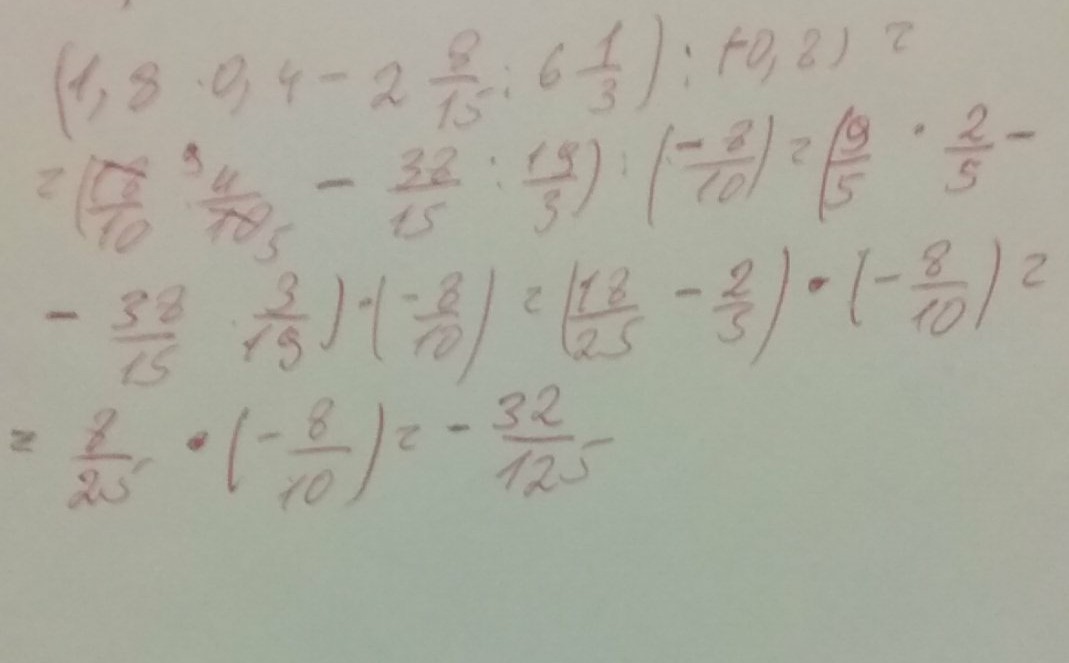 (1,8 · 0,4 - 2 8/15 : 6 1/3) : (-0,8) =
= (18/10 9 · 4/10 5 - 38/15 : 19/3) : (-8/10) = (9/5 · 2/5 -
- 38/15 · 3/19) · (-8/10) = (18/25 - 2/5) · (-8/10) =
= 8/25 · (-8/10) = - 32/125